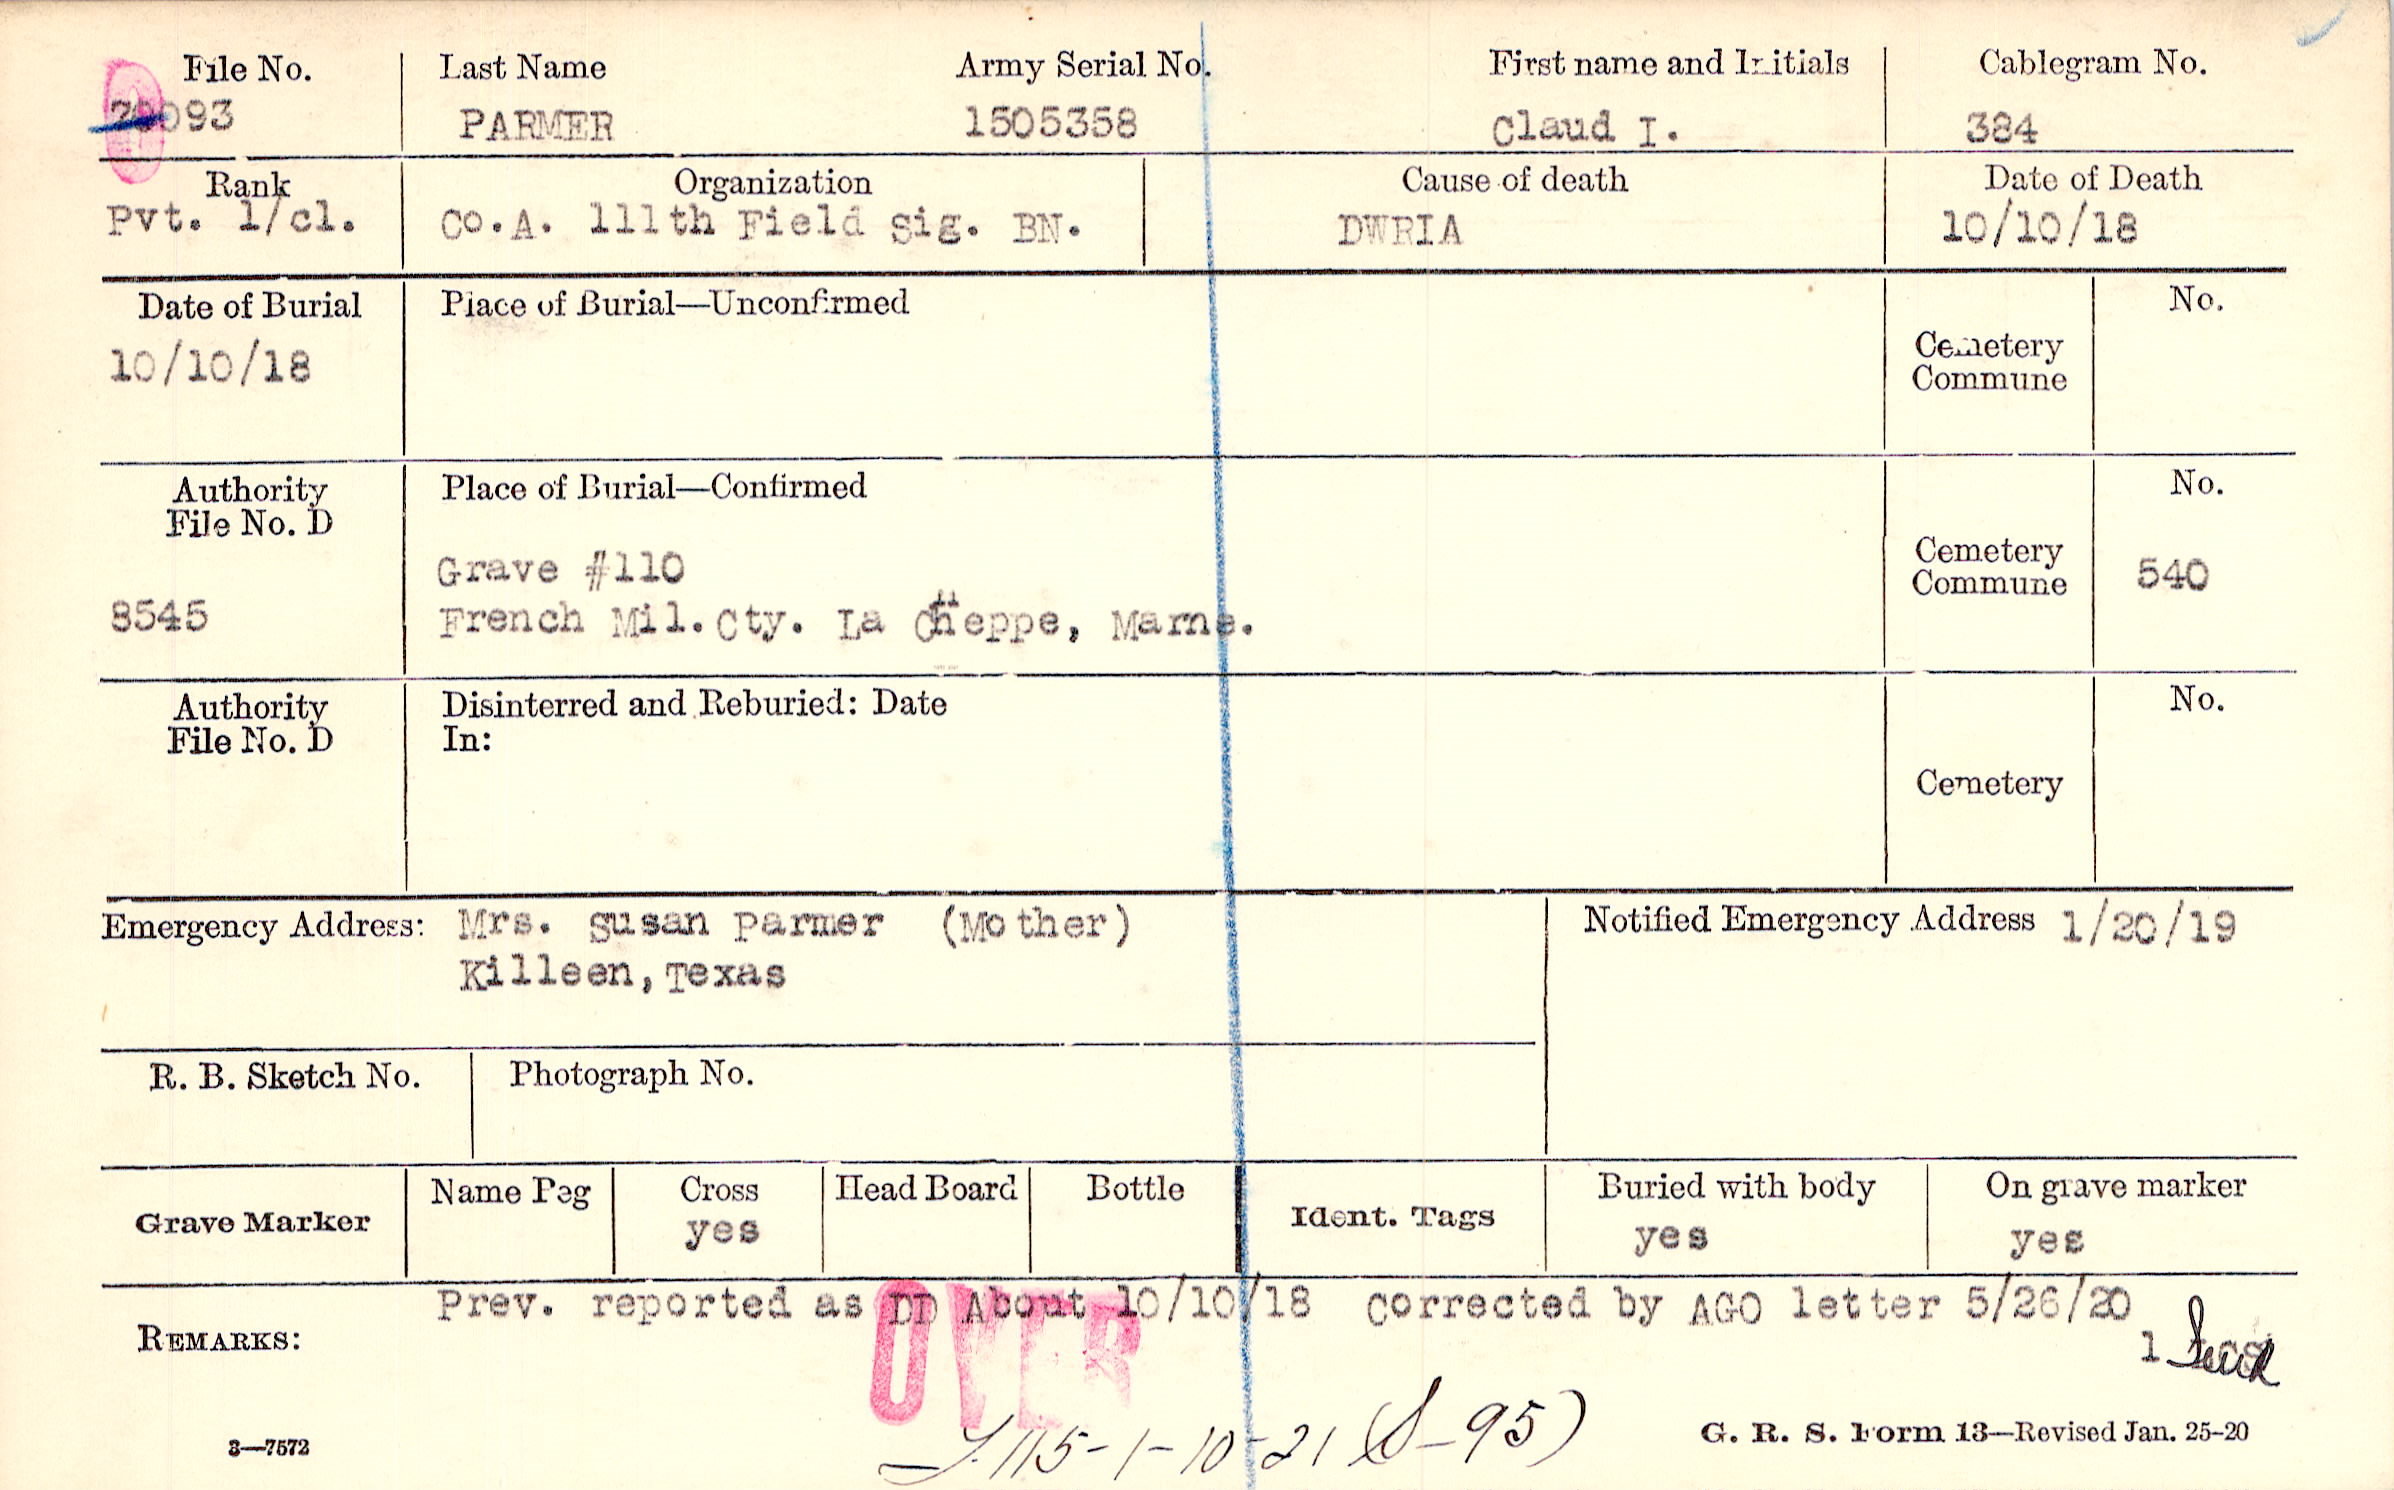 File No. Last Name Army Serial No. First name and Initials Cablegram No.
PARMER 1505358 Claud I. 384
Rank Organization Cause of death Date of Death
Pvt. 1/cl. Co.A. 111th Field Sig. BN. DWRIA 10/10/18
Date of Burial Place of Burial—Unconfirmed No.
10/10/18 Cemetery
Commune
Authority Place of Burial—Confirmed No.
File No. D
Grave #110 Cemetery
Commune 540
8545 French Mil. Cty. La Cheppe, Marne.
Authority Disinterred and Reburied: Date No.
File No. D In:
Cemetery
Emergency Address: Mrs. Susan Parmer (Mother) Notified Emergency Address 1/20/19
Killeen, Texas
R. B. Sketch No. Photograph No.
Grave Marker Name Peg Cross Head Board Bottle Ident. Tags Buried with body On grave marker
yes yes yes
Prev. reported as DD About 10/10/18 Corrected by AGO letter 5/26/20
REMARKS: 1
OVER
115-1-10-21 (S-95)
3—7572 G. R. S. Form 13—Revised Jan. 25-20